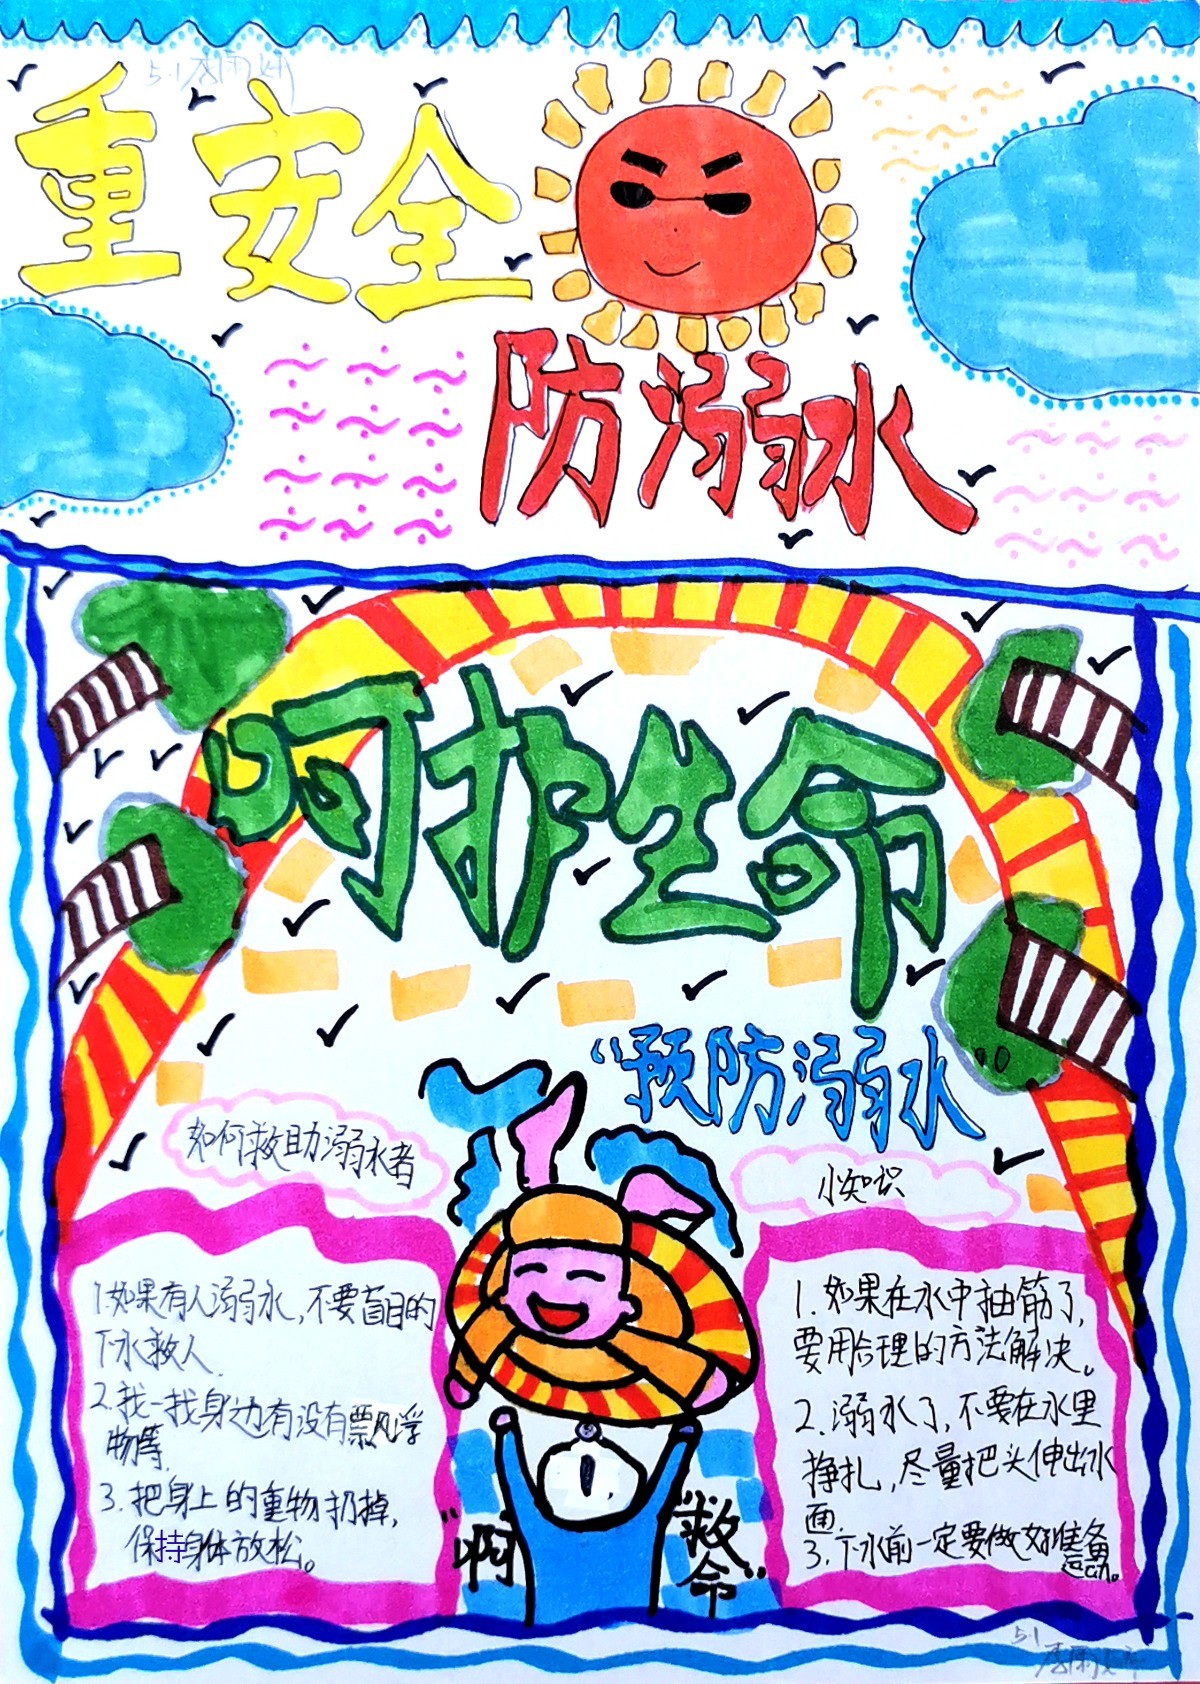 重安全
防溺水
呵护生命
“预防溺水”
如何救助溺水者
小知识
1.如果有人溺水,不要盲目的
下水救人.
2.找一找身边有没有飘浮
物等.
3.把身上的重物扔掉,
保持身体放松。
1.如果在水中抽筋了,
要用合理的方法解决。
2.溺水了,不要在水里
挣扎,尽量把头伸出水
面.
3.下水前一定要做好准备
运动。
“啊
救
命”
5.1